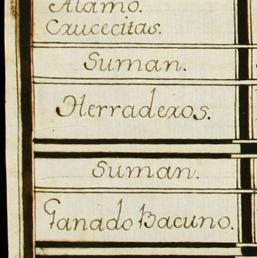 Alamo.
Cruecitas.
Suman.
Herraderos.
Suman.
Ganado Bacuno.